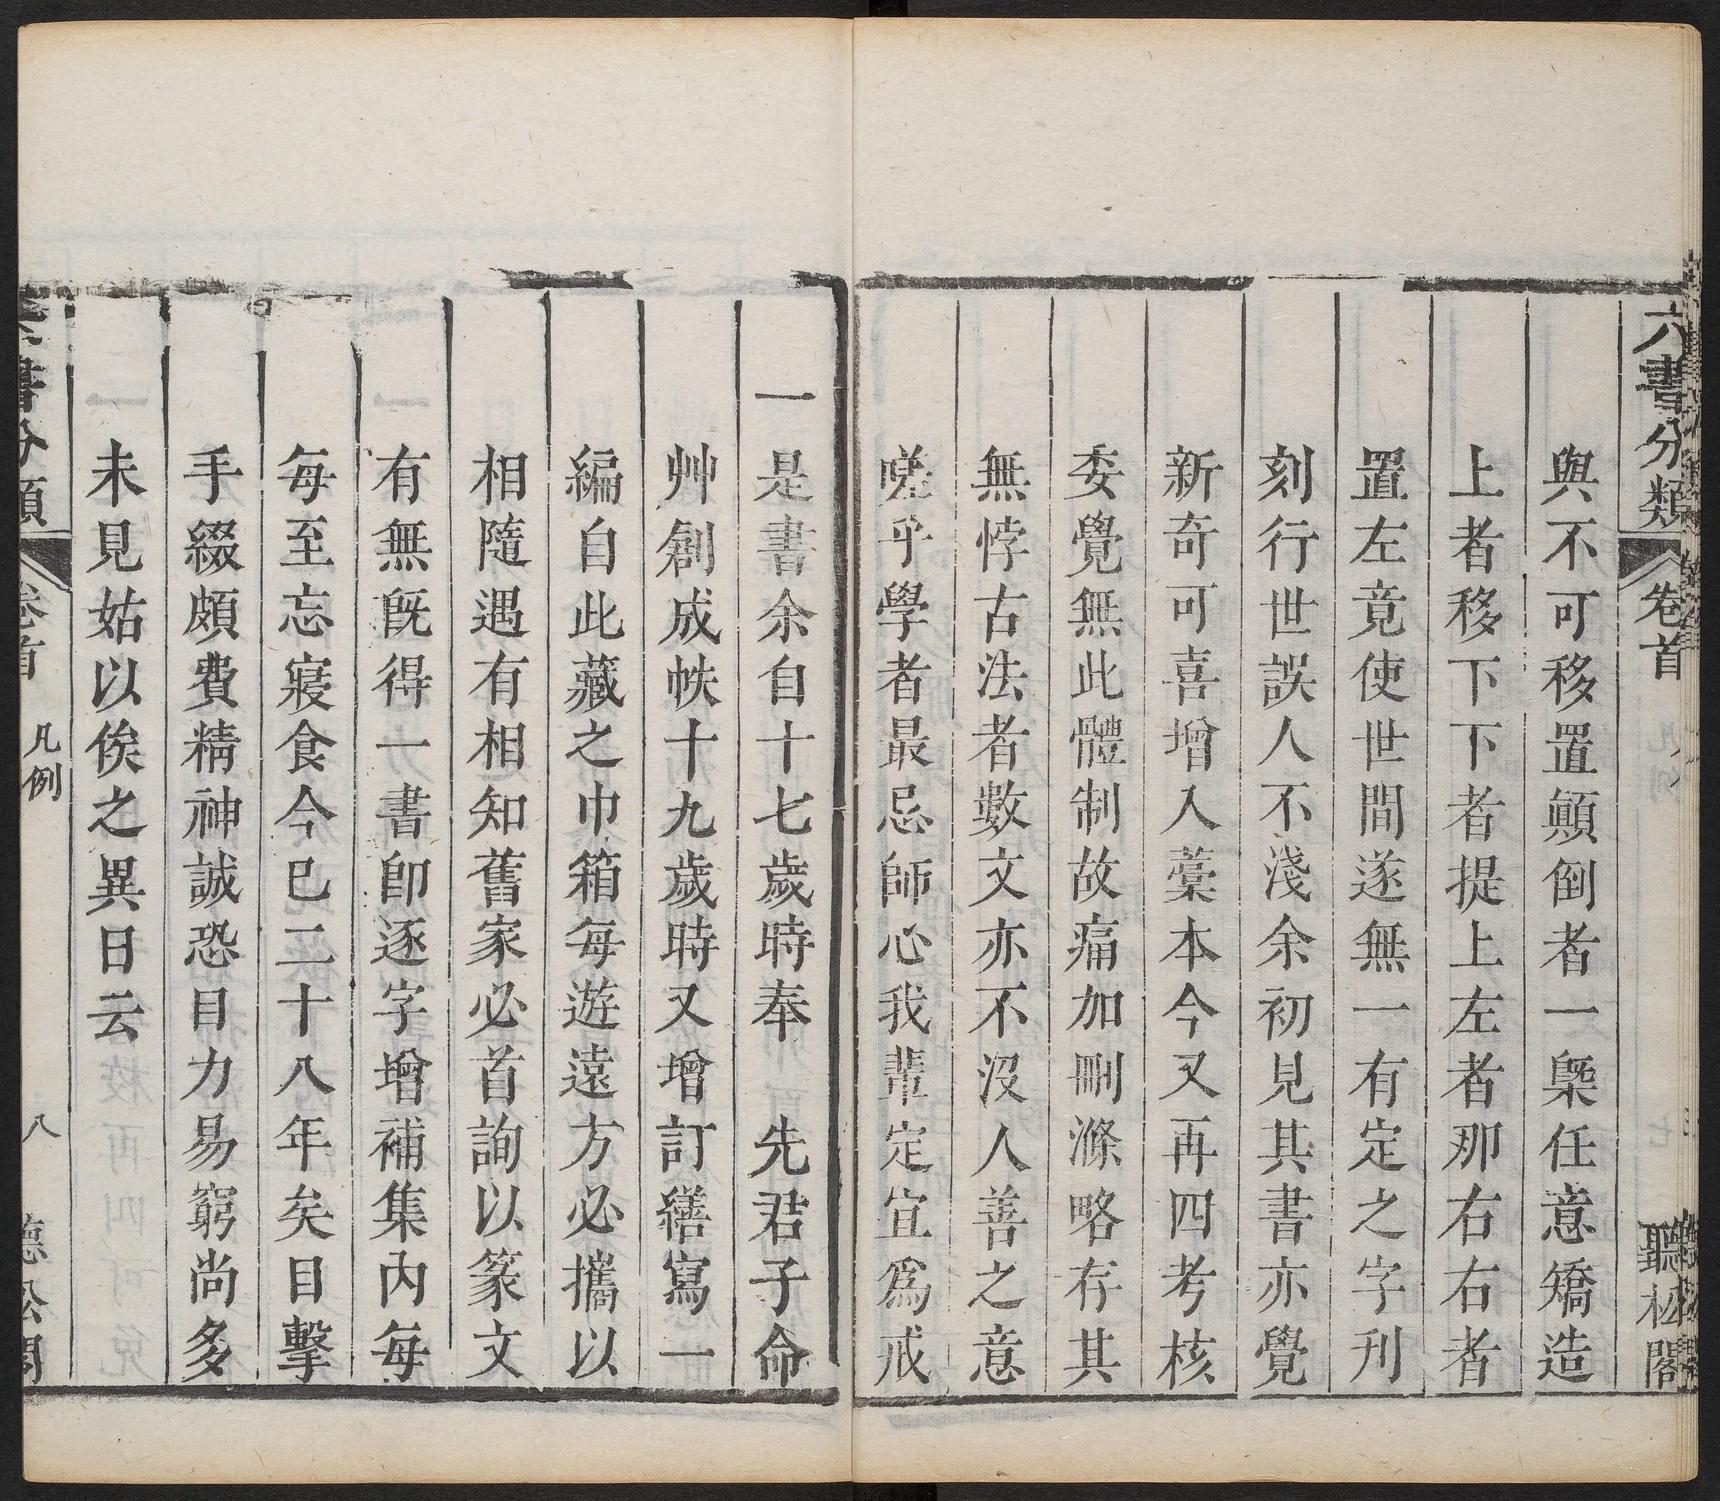 六書分類 卷首 聽松閣
與不可移置顛倒者一槩任意矯造
上者移下下者提上左者那右右者
置左竟使世間遂無一有定之字刋
刻行世誤人不淺余初見其書亦覺
新奇可喜增入藁本今又再四考核
委覺無此體制故痛加刪滌略存其
無悖古法者數文亦不沒人善之意
嗟乎學者最忌師心我輩定宜爲戒
一是書余自十七歲時奉 先君子命
艸創成帙十九歲時又增訂繕寫一
編自此藏之巾箱每遊遠方必攜以
相隨遇有相知舊家必首詢以篆文
有無旣得一書卽逐字增補集內每
每至忘寢食今已二十八年矣目擊
手綴頗費精神誠恐目力易窮尚多
未見姑以俟之異日云
書分類 卷首 凡例 八 聽松閣